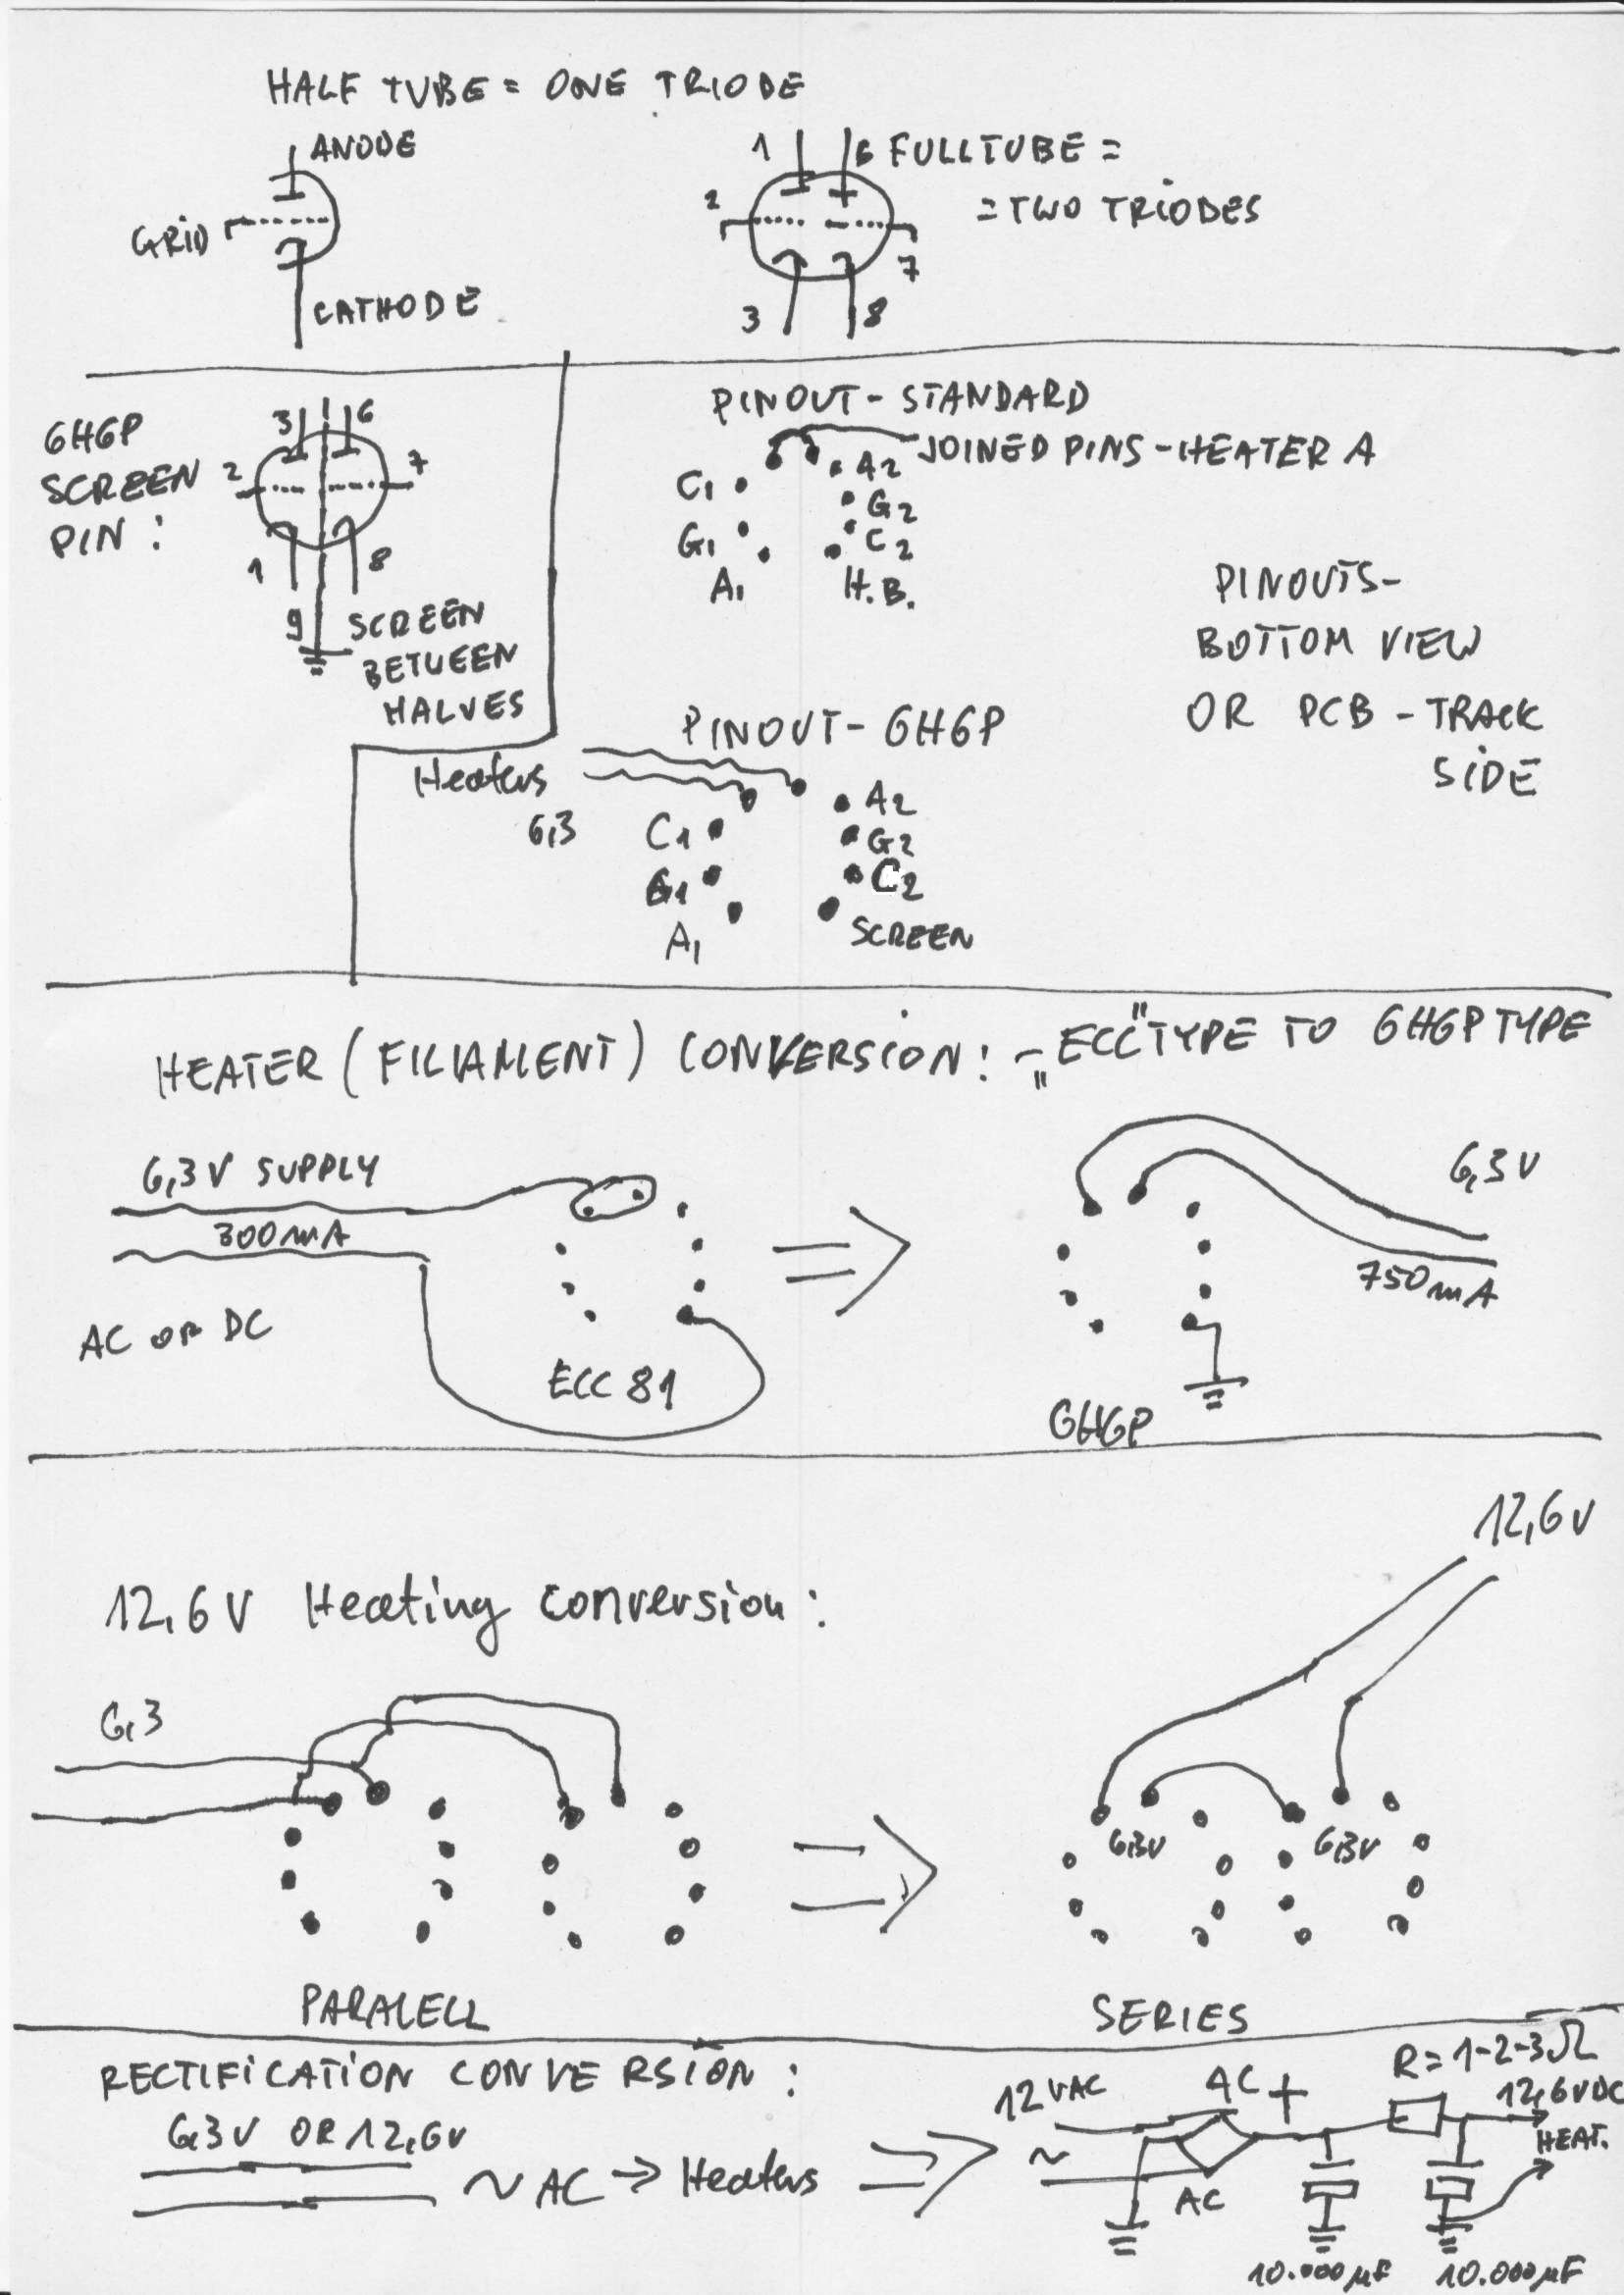 HALF TUBE = ONE TRIODE
ANODE
GRID
CATHODE
1
6 FULLTUBE =
= TWO TRIODES
2
7
3
8
6H6P
SCREEN
PIN :
3
6
2
7
1
8
9
SCREEN
BETWEEN
HALVES
PINOUT - STANDARD
JOINED PINS - HEATER A
C1
A2
G2
G1
C2
A1
H.B.
PINOUTS -
BOTTOM VIEW
OR PCB - TRACK
SIDE
PINOUT - 6H6P
Heaters
6,3
A2
C1
G2
G1
C2
A1
SCREEN
HEATER (FILIAMENT) CONVERSION: - „ECC" TYPE TO 6H6P TYPE
6,3V SUPPLY
300mA
AC OR DC
ECC 81
6,3V
750mA
6H6P
12,6V
12,6V Heating conversion :
6,3
6,3V
6,3V
PARALELL
SERIES
RECTIFICATION CONVERSION :
6,3V OR 12,6V
~ AC → Heaters
12VAC
~
AC
+
AC
R = 1-2-3Ω
12,6VDC
HEAT.
10.000µF
10.000µF